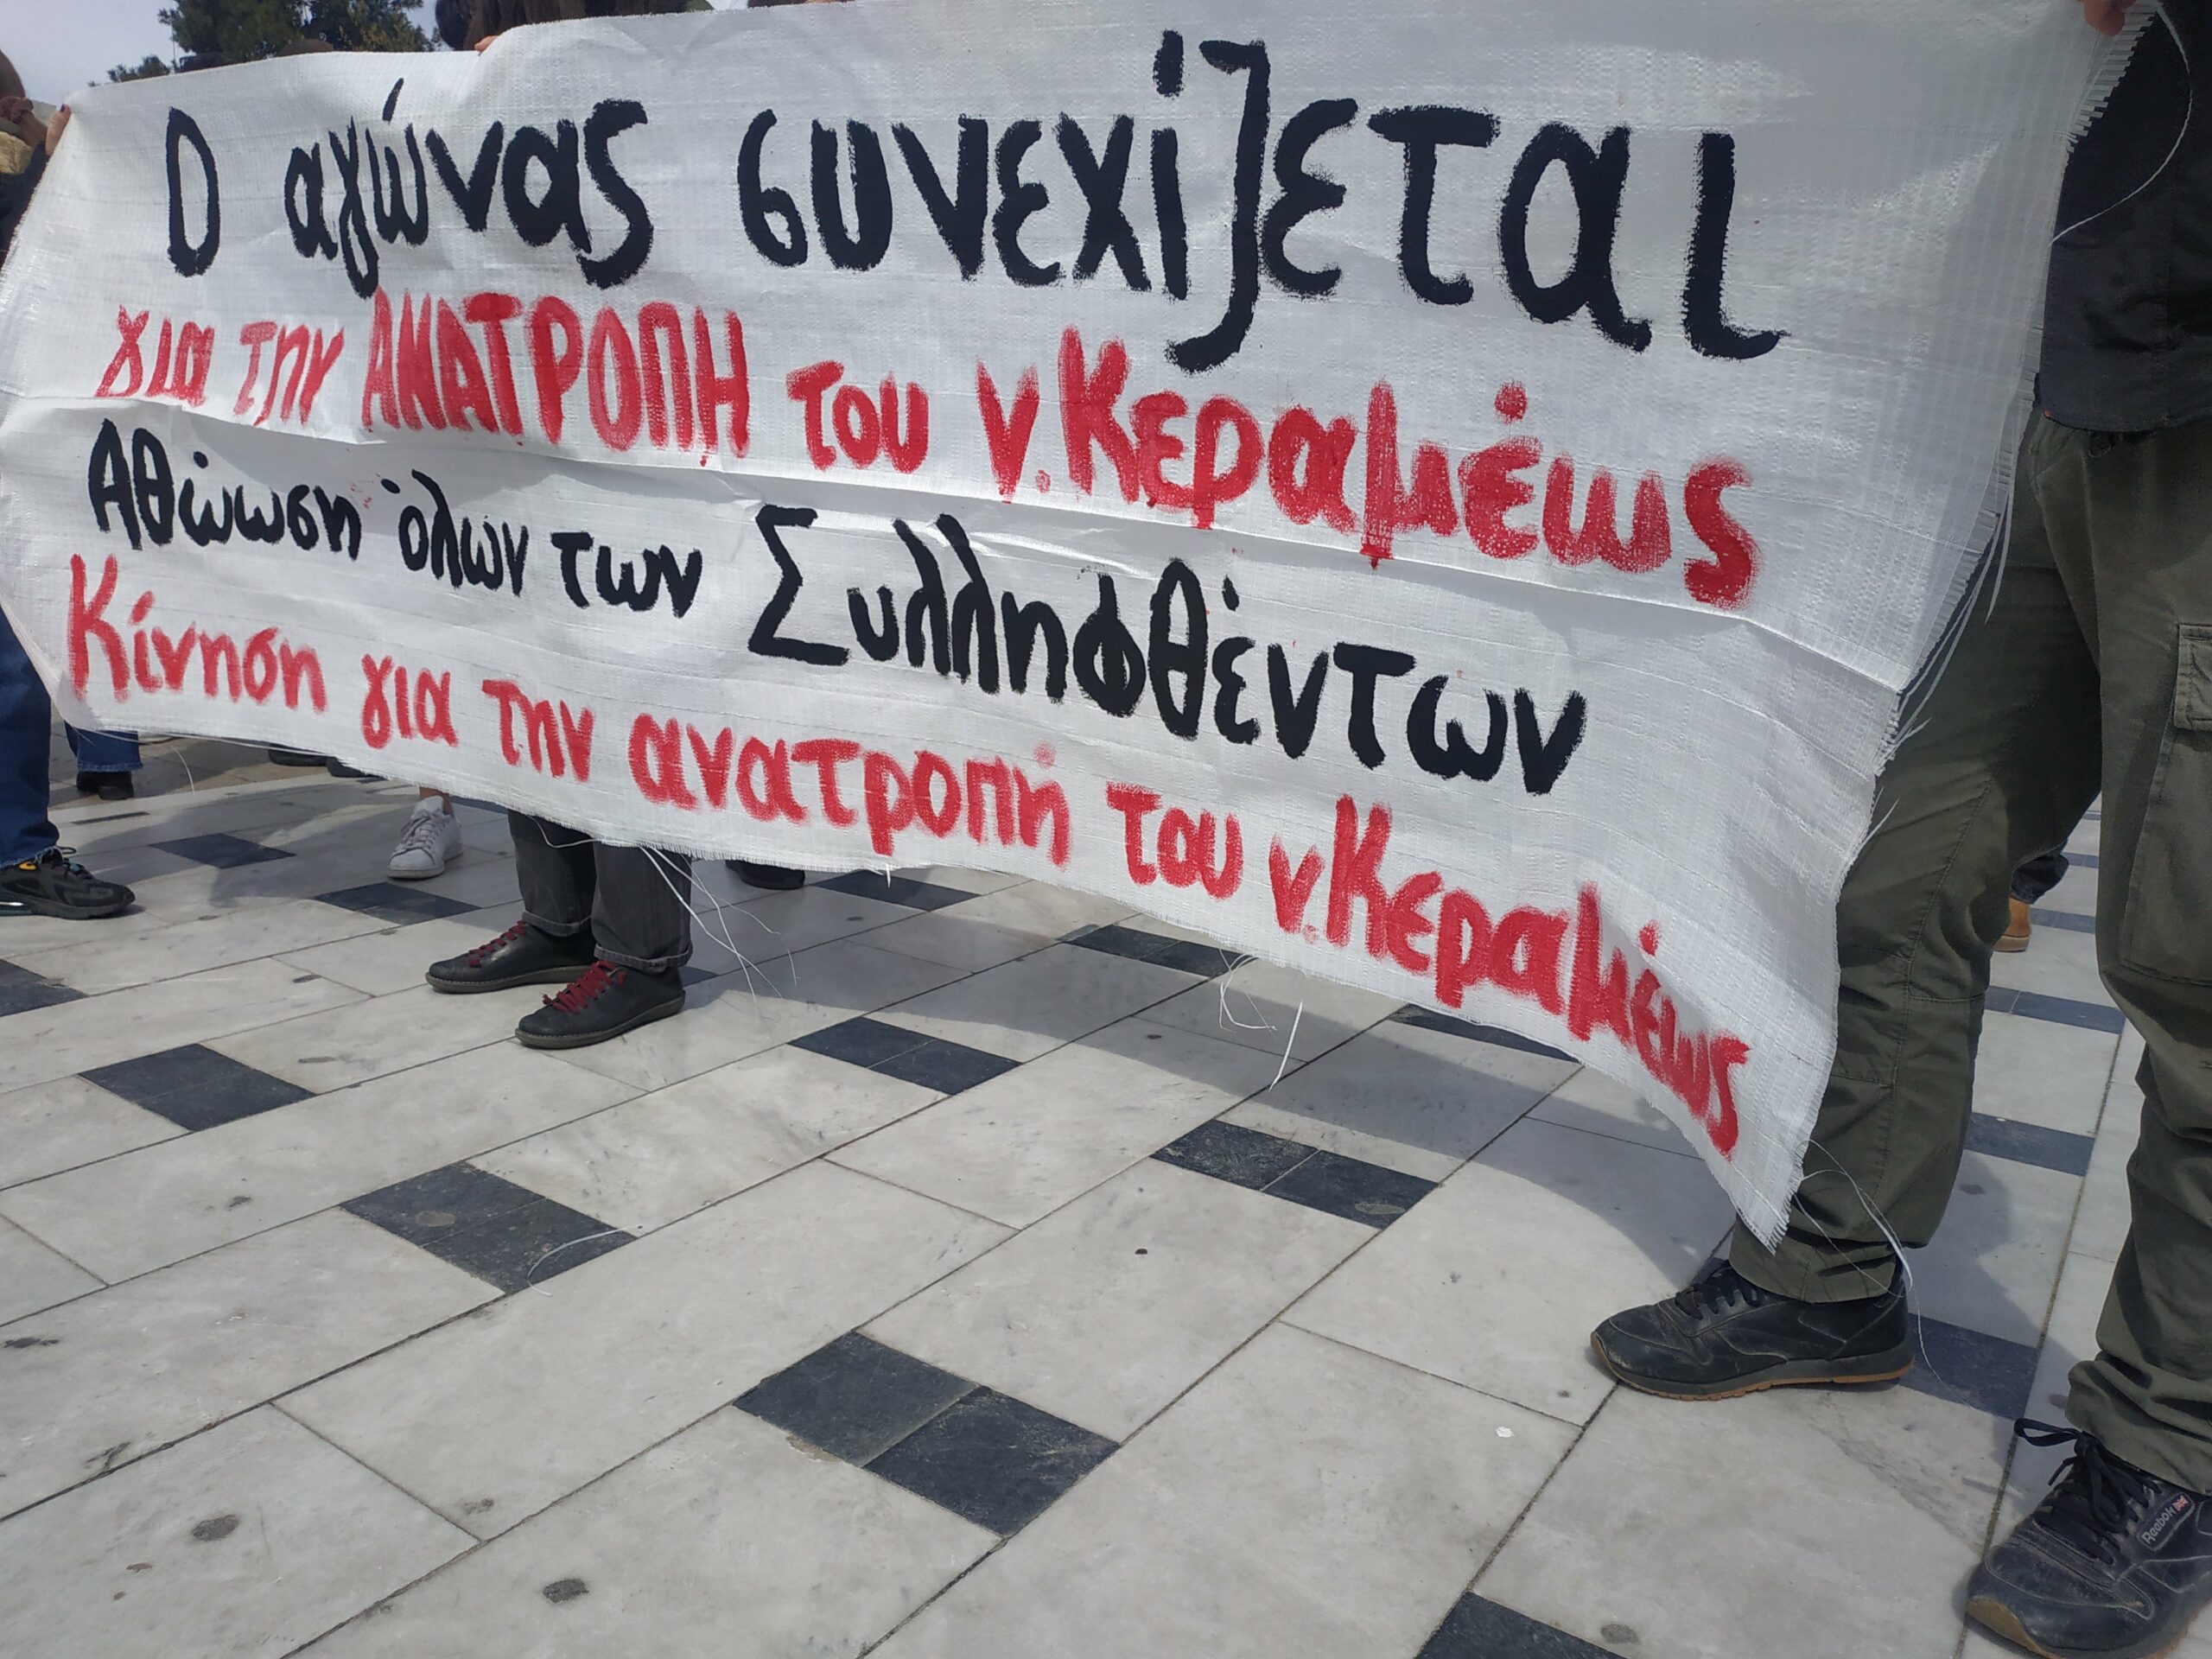 Ο αγώνας συνεχίζεται
για την ΑΝΑΤΡΟΠΗ του ν.Κεραμέως
Αθώωση όλων των Συλληφθέντων
Κίνηση για την ανατροπή του ν.Κεραμέως
Reebok